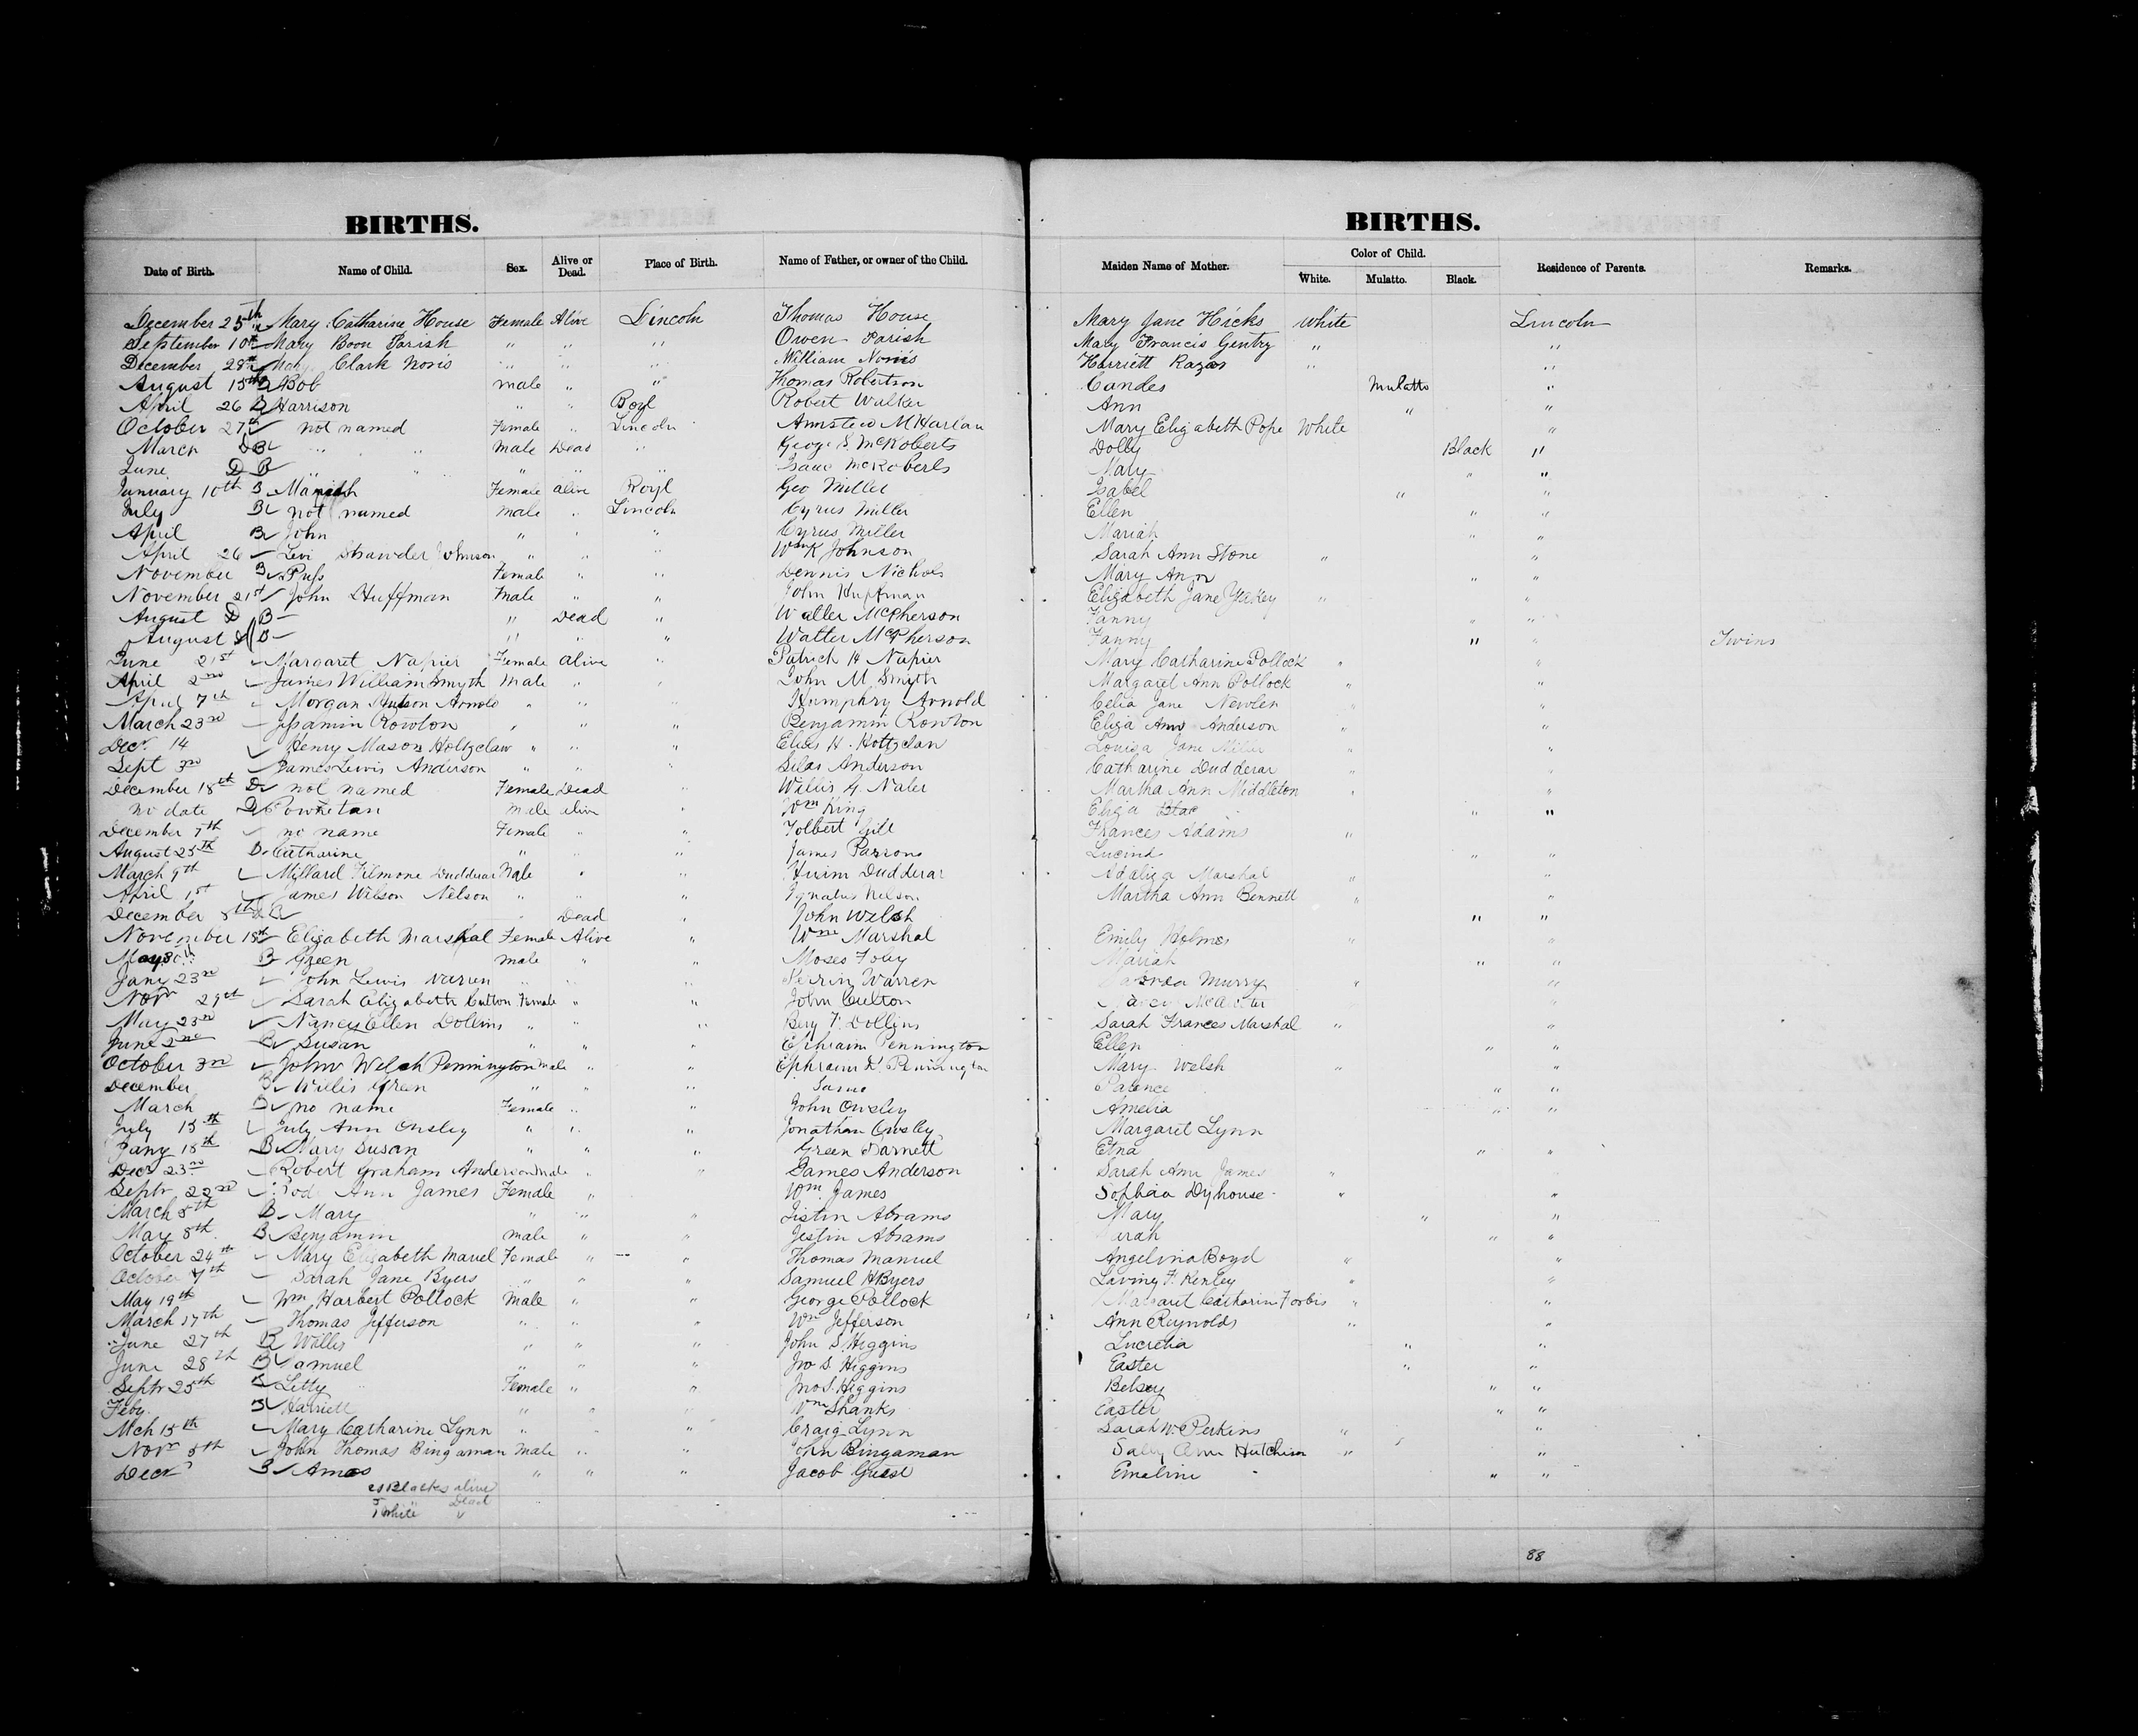 BIRTHS. BIRTHS.
Date of Birth. Name of Child. Sex. Alive or Dead. Place of Birth. Name of Father, or owner of the Child. Maiden Name of Mother. Color of Child. White. Mulatto. Black. Residence of Parents. Remarks.
December 25th Mary Catharine House Female Alive Lincoln Thomas House Mary Jane Hicks White Lincoln
September 10th Mary Boon Parish " " " Owen Parish Mary Francis Gentry " "
December 28th Mary Clark Noris " " " William Noris Harriett " "
August 15th B Bob male " " Thomas Robertson Candes Mulatto "
April 26 B Harrison " " Boyl Robert Walker Ann " "
October 27th not named Female " Lincoln Armsted McHarlan Mary Elizabeth Pope White "
March D B " " male Dead " George S. McRoberts Dolly Black "
June D B " " " " " Isaac McRoberts Mary " "
January 10th B Female alive Boyl Geo Miller Isabel " "
July B not named male " Lincoln Cyrus Miller Ellen " "
April B John " " " Cyrus Miller Mariah " "
April 26 Levi Strawder Johnson " " " Wm K Johnson Sarah Ann Stone " "
November B Puss Female " " Dennis Nichols Mary Ann " "
November 21st John Huffman male " " John Huffman Elizabeth Jane Yeakey " "
August D B " Dead " Walter McPherson Fanny " "
August D B " " Walter McPherson Fanny " " Twins
June 21st Margaret Napier Female alive " Patrick H Napier Mary Catharine Pollock " "
April 2nd James William Smyth Male " " John M Smyth Margaret Ann Pollock " "
April 7th Morgan Hutson Arnold " " " Humphry Arnold Celia Jane Newlen " "
March 23rd Rowton " " " Benjamin Rowton Eliza Ann Anderson " "
Decr 14 Henry Mason Holtzclaw " " " Elias H. Holtzclaw Louisa Jane Miller " "
Sept 3rd James Lewis Anderson " " " Silas Anderson Catharine Dudderar " "
December 18th D not named Female Dead " Willis G. Naler Martha Ann Middleton " "
no date B Powhetan male alive " Wm King Eliza " "
December 7th no name Female " " Tolbert Gill Frances Adams " "
August 25th B Catharine " " " James Parrone Lucinda " "
March 9th Millard Filmone Dudderar Male " " Hiram Dudderar Adaliza Marshal " "
April 1st James Wilson Nelson " " " Ignatius Nelson Martha Ann Bennett " "
December 8th D B " Dead " John Welsh " "
November 18th Elizabeth Marshal Female Alive " Wm Marshal Emily Holmes " "
May 30th B Green male " " Moses Foley Mariah " "
Jany 23rd John Lewis Warren " " " Perrin Warren Murry " "
Novr 29th Sarah Elizabeth Culton Female " " John Culton " "
May 23rd Nancy Ellen Dollins " " " Berry T. Dollins Sarah Frances Marshal " "
June 2nd B Susan " " " Ephraim Pennington Ellen " "
October 3rd John Welch Pennington male " " Ephraim D. Pennington Mary Welsh " "
December B Willis Green " " " Same Patience " "
March B no name Female " " John Owsley Amelia " "
July 15th July Ann Owsley " " " Jonathan Owsley Margaret Lynn
Jany 18th B Mary Susan " " " Green Barnett Etna " "
Decr 23rd Robert Graham Anderson male " " James Anderson Sarah Ann James "
Septr 22nd Ann James Female " Wm James Sophia Dyhouse " "
March 5th B Mary " " " Jistin Abrams Mary " "
May 8th B Benjamin male " " Jistin Abrams " "
October 24th Mary Elizabeth Manuel Female " " Thomas Manuel Angelina Boyd " "
October 7th Sarah Jane Byers " " " Samuel H Byers Laviny F. Kenley " "
May 19th Wm Harbert Pollock Male " " George Pollock Margaret Catharine Forbis " "
March 17th Thomas Jefferson " " " Wm Jefferson Ann Reynolds " "
June 27th B Willis " " " John S. Higgins Lucretia " "
June 28th B Samuel " " " Jno S. Higgins Easter " "
Septr 25th B Letty Female " " Jno S. Higgins Betsey " "
Feby B Harriett " " " Wm Shanks Easter " "
Mch 15th Mary Catharine Lynn " " " Craig Lynn Sarah W. Perkins " "
Novr 5th John Thomas Bingaman Male " " John Bingaman Sally Ann Hutchison " "
Decr B Amos " " " Jacob Guest Emeline " "
Blacks alive
5 " Dead
1 White "
88